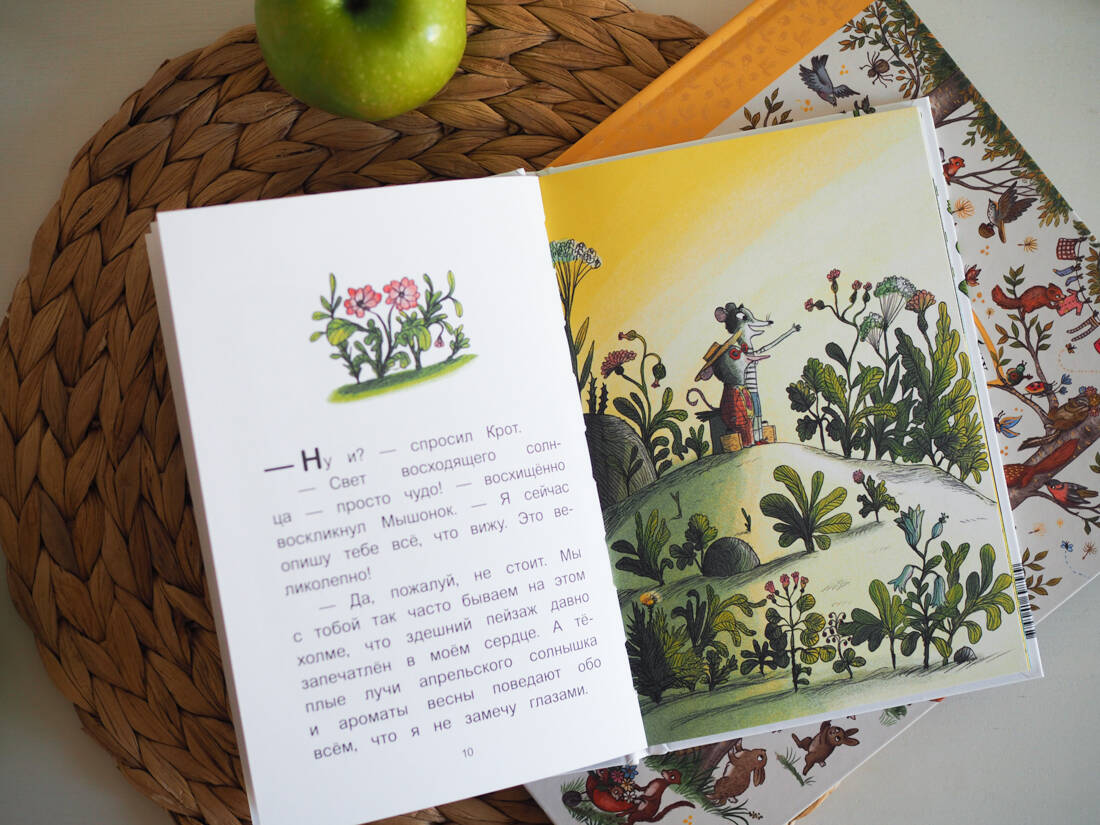 — Ну и? — спросил Крот.
— Свет восходящего солн-
ца — просто чудо! — восхищённо
воскликнул Мышонок. — Я сейчас
опишу тебе всё, что вижу. Это ве-
ликолепно!
— Да, пожалуй, не стоит. Мы
с тобой так часто бываем на этом
холме, что здешний пейзаж давно
запечатлён в моём сердце. А тё-
плые лучи апрельского солнышка
и ароматы весны поведают обо
всём, что я не замечу глазами.
10